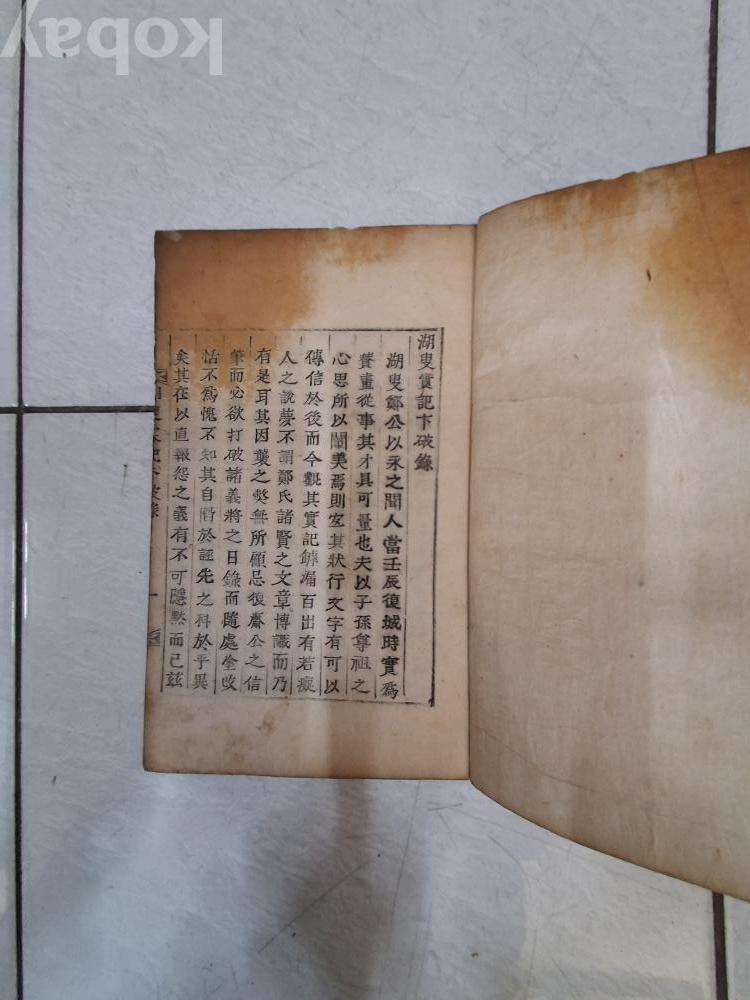 湖叟實記卞破錄
湖叟鄭公以永之聞人當壬辰復城時實爲
賛畫從事其才具可量也夫以子孫尊祖之
心思所以闡美焉則宜其狀行文字有可以
傳信於後而今觀其實記罅漏百出有若癡
人之說夢不謂鄭氏諸賢之文章博識而乃
有是耳其因襲之獘無所顧忌復齋公之信
筆而必欲打破諸義將之日錄而隨處塗改
恬不爲愧不知其自陷於誣先之科於乎異
矣其在以直報怨之義有不可隱默而已玆
一
kobay